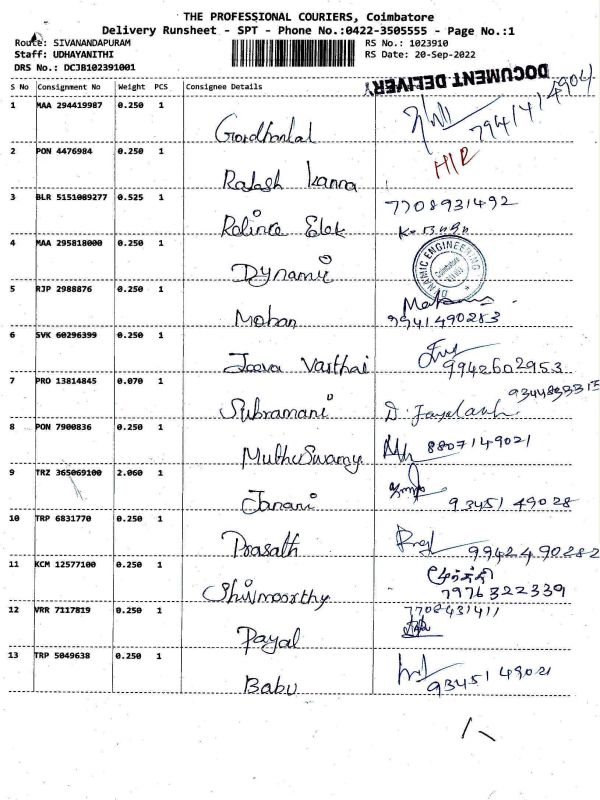 THE PROFESSIONAL COURIERS, Coimbatore
Delivery Runsheet - SPT - Phone No.:0422-3505555 - Page No.:1
Route: SIVANANDAPURAM RS No.: 1023910
Staff: UDHAYANITHI RS Date: 20-Sep-2022
DRS No.: DCJB102391001
DOCUMENT DELIVERY
S No Consignment No Weight PCS Consignee Details
1 MAA 294419987 0.250 1
Gordhanlal 7941414904
2 PON 4476984 0.250 1 H/R
Rajash kanna
3 BLR 5151089277 0.525 1 7708931492
Relince Elek
4 MAA 295818000 0.250 1
NAMIC ENGINEERING
Coimbatore
Dynamic
5 RJP 2988876 0.250 1
Mohan 9941490283
6 SVK 60296399 0.250 1
Jeeva Varthai 9942602953
7 PRO 13814845 0.070 1
Subramani D. Jayalaxh
8 PON 7900836 0.250 1
MuthuSwamy 8807149021
9 TRZ 365069100 2.060 1
Janani 93451 49028
10 TRP 6831770 0.250 1
Prasath 9942490282
11 KCM 12577100 0.250 1
Shivmoorthy 7976322339
12 VRR 7117819 0.250 1 7708431411
Payal
13 TRP 5049638 0.250 1
Babu 9345149021